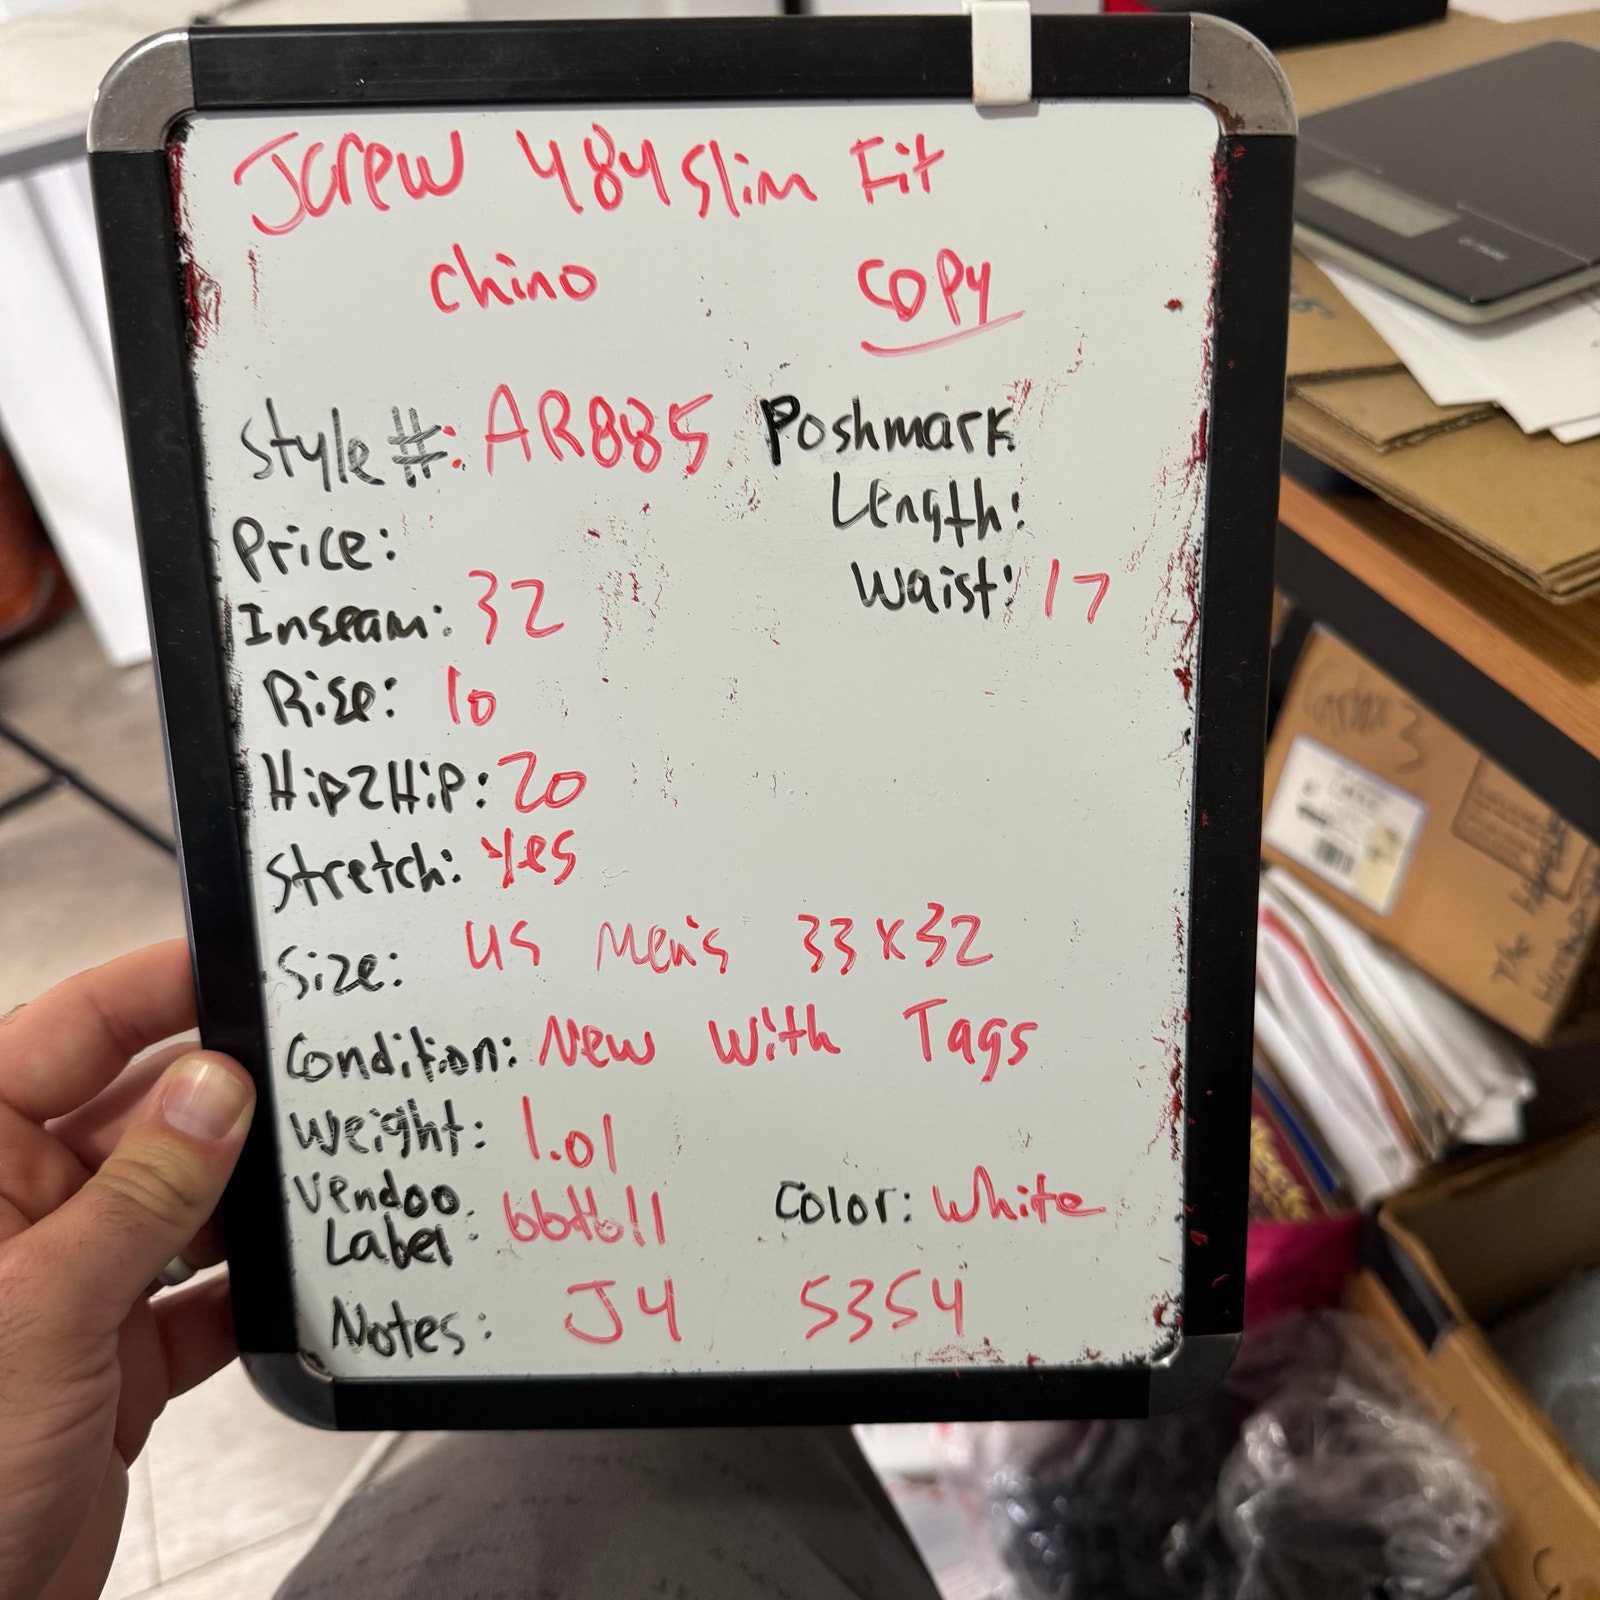 Jcrew 484 Slim Fit
chino copy
Style #: AR885 Poshmark
Length:
Price:
Waist: 17
Inseam: 32
Rise: 10
Hip2Hip: 20
Stretch: Yes
Size: US Men's 33x32
Condition: New With Tags
Weight: 1.01
Vendoo
Label: Color: White
Notes: J4 5354